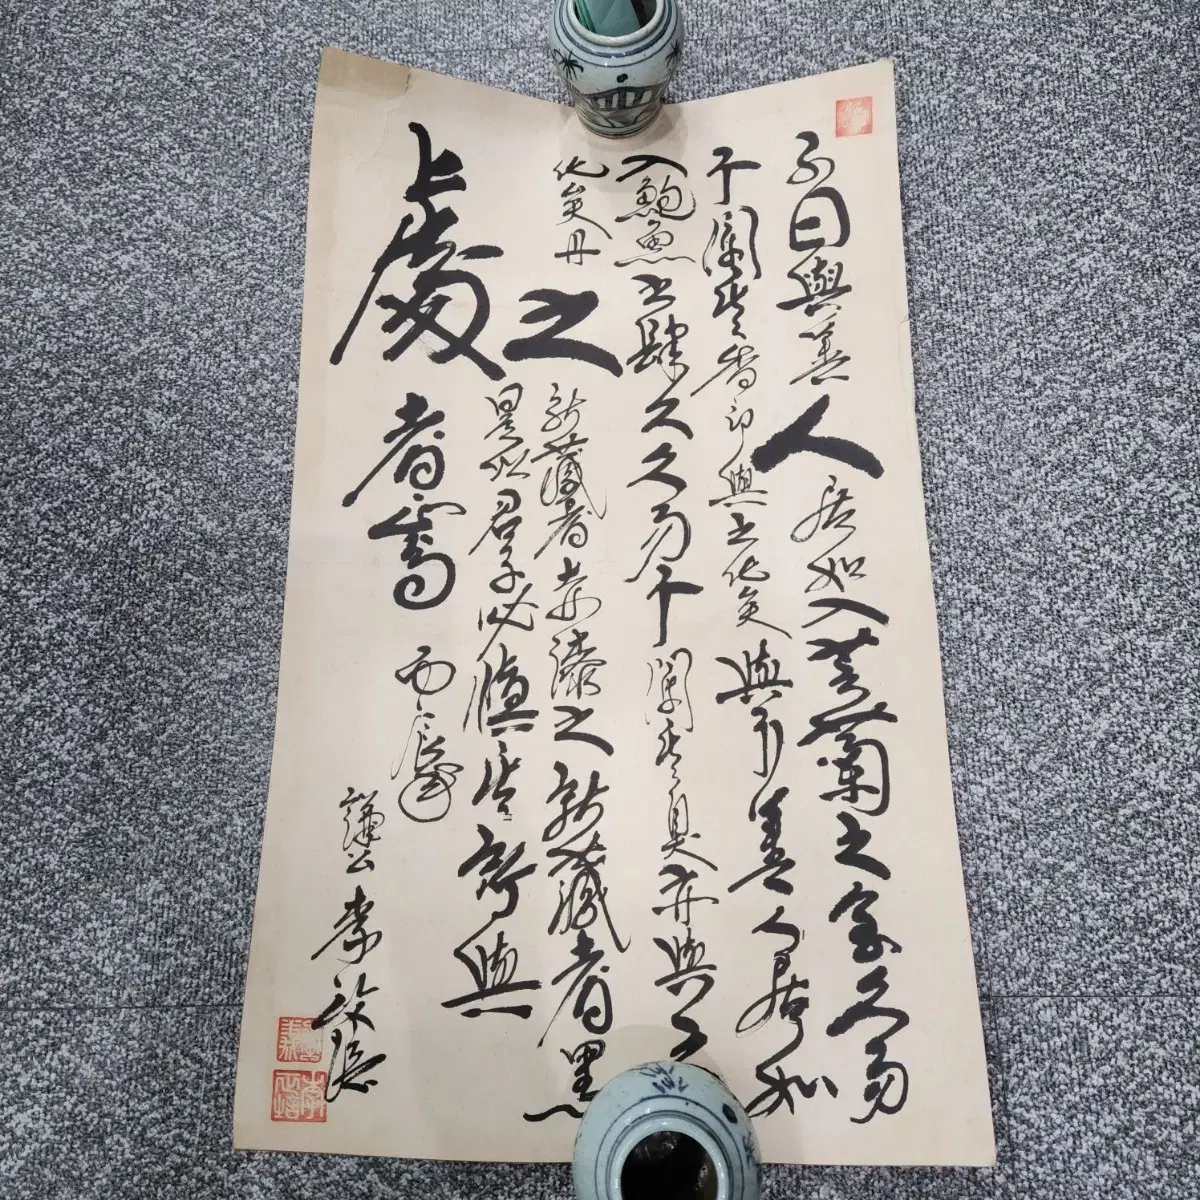 子曰與善人居如入芝蘭之室久而
不聞其香即與之化矣與不善人居如
入鮑魚之肆久久而不聞其臭亦與之
化矣丹之所藏者赤漆之所藏者黑
是以君子必慎其所與
處者焉 丙辰
謙公 李